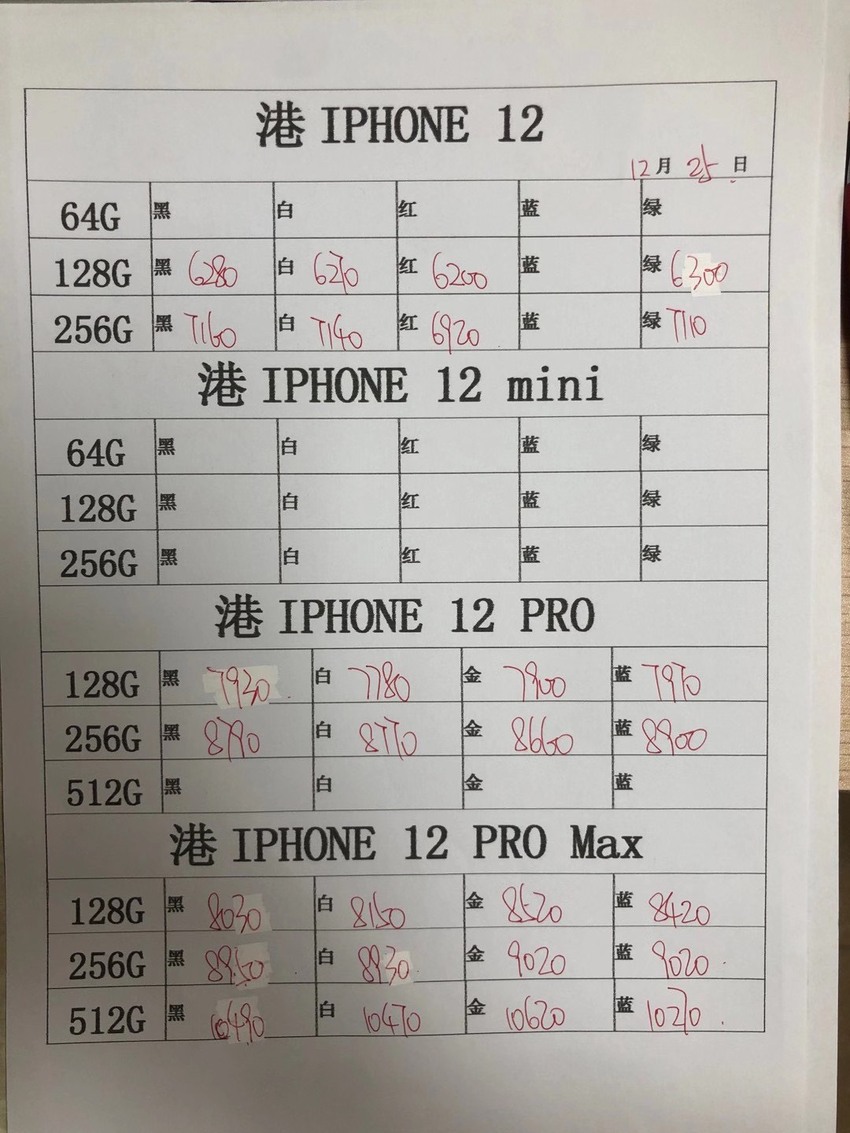 港IPHONE 12
12月25日
64G 黑 白 红 蓝 绿
128G 黑 6280 白 6270 红 6200 蓝 绿 6300
256G 黑 7160 白 7140 红 6920 蓝 绿 7110
港IPHONE 12 mini
64G 黑 白 红 蓝 绿
128G 黑 白 红 蓝 绿
256G 黑 白 红 蓝 绿
港IPHONE 12 PRO
128G 黑 7930 白 7780 金 7900 蓝 7970
256G 黑 8790 白 8770 金 8660 蓝 8900
512G 黑 白 金 蓝
港IPHONE 12 PRO Max
128G 黑 8030 白 8150 金 8520 蓝 8420
256G 黑 白 8930 金 9020 蓝 9020
512G 黑 10490 白 10470 金 10620 蓝 10270